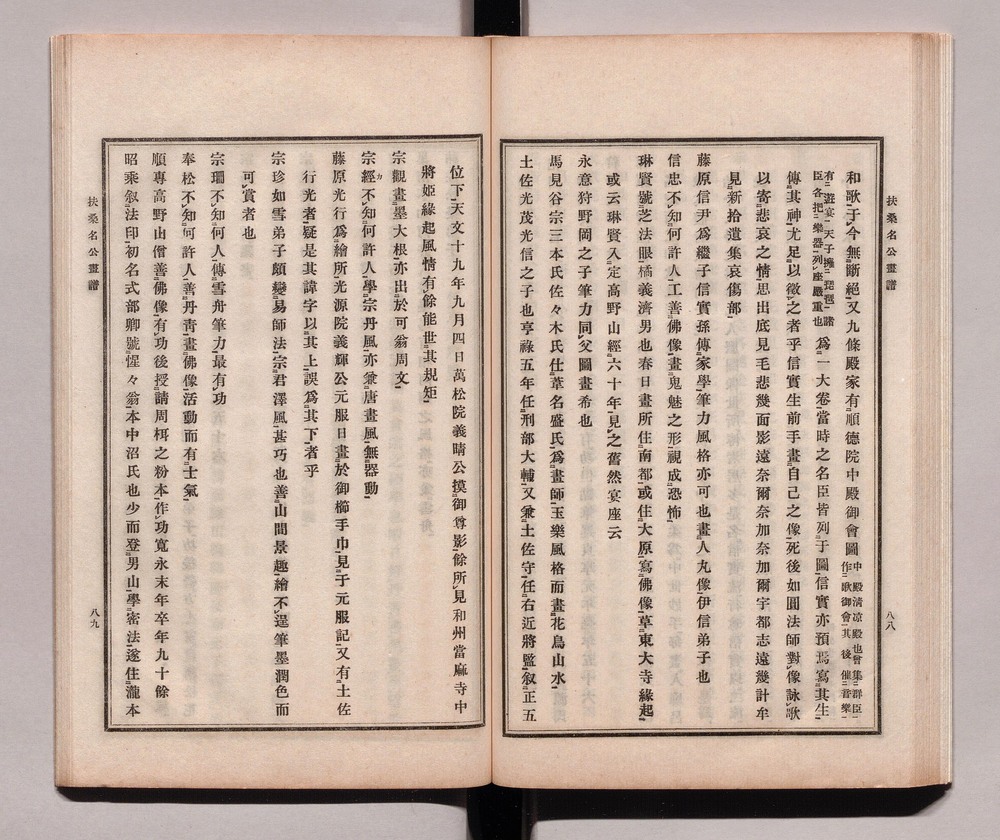 扶桑名公畫譜
八八
和歌于今無斷絕又九條殿家有順德院中殿御會圖中殿清凉殿也曾集群臣作歌御會其後催音樂
有遊宴天子擁琵琶諸臣各把樂器列座嚴重也爲一大卷當時之名臣皆列于圖信實亦預焉寫其生
傳其神尤足以徵之者乎信實生前手畫自己之像死後如圓法師對像詠歌
以寄悲哀之情思出底見毛悲幾面影遠奈爾奈加奈加爾宇都志遠幾計牟
見新拾遺集哀傷部
藤原信尹爲繼子信實孫傳家學筆力風格亦可也畫人丸像伊信弟子也
信忠不知何許人工善佛像畫鬼魅之形視成恐怖
琳賢號芝法眼橘義濟男也春日畫所住南都或住大原寫佛像草東大寺緣起
或云琳賢入定高野山經六十年見之舊然宴座云
永意狩野岡之子筆力同父圖畫希也
馬見谷宗三本氏佐々木氏仕葦名盛氏爲畫師玉樂風格而畫花鳥山水
土佐光茂光信之子也亨祿五年任刑部大輔又兼土佐守任右近將監叙正五
位下天文十九年九月四日萬松院義晴公摸御尊影餘所見和州當麻寺中
將姬緣起風情有餘能世其規矩
宗觀畫墨大根亦出於可翁周文
宗經不知何許人學宗丹風亦兼唐畫風無器動
藤原光行爲繪所光源院義輝公元服日畫於御櫛手巾見于元服記又有土佐
行光者疑是其諱字以其上誤爲其下者乎
宗珍如雪弟子頗變易師法宗君澤風甚巧也善山間景趣繪不逞筆墨潤色而
可賞者也
宗珊不知何人傳雪舟筆力最有功
奉松不知何許人善丹靑畫佛像活動而有士氣
順專高野山僧善佛像有功後授請周栮之粉本作功寬永末年卒年九十餘
昭乘叙法印初名式部卿號惺々翁本中沼氏也少而登男山學密法遂住瀧本
扶桑名公畫譜
八九